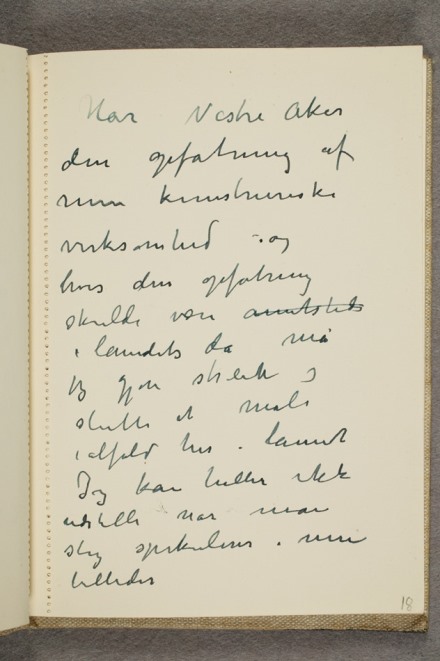 Har Vestre Aker
den opfatning af
min kunstneriske
virksomhed – og
hvis den opfatning
skulde være
i landets da må
jeg gjøre streik og
slutte at male
ialfald her i landet
Jeg kan heller ikke
udstille når man
slig spekulerer i mine
billeder
18